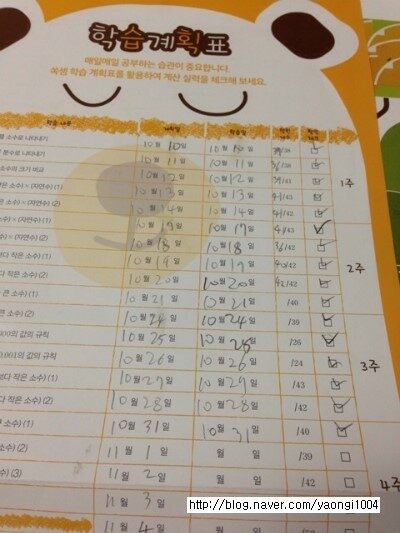 학습계획표
매일매일 공부하는 습관이 중요합니다.
쏙셈 학습 계획표를 활용하여 계산 실력을 체크해 보세요.
학습 내용 계획일 학습일
소수로 나타내기 10월 10일 10월 10일 /38
분수로 나타내기 10월 11일 10월 11일 36/38 1주
소수의 크기 비교 10월 12일 10월 12일 39/41
작은 소수)×(자연수) (1) 10월 13일 10월 13일 41/43
작은 소수)×(자연수) (2) 10월 14일 10월 14일 41/42
소수)×(자연수) (1) 10월 17일 10월 17일 41/43
소수)×(자연수) (2) 10월 18일 10월 18일 36/42 2주
다 작은 소수) (1) 10월 19일 10월 19일 40/42
다 작은 소수) (2) 10월 20일 10월 20일 42/42
큰 소수) (1) 10월 21일 10월 21일 /40
큰 소수) (2) 10월 24일 10월 24일 /39
000의 값의 규칙 10월 25일 10월 25일 /26 3주
0.001의 값의 규칙 10월 26일 10월 26일 /24
보다 작은 소수) (1) 10월 27일 10월 27일 /43
다 작은 소수) (2) 10월 28일 10월 28일 /42
소수) (1) 10월 31일 10월 31일 /40
소수) (2) 11월 1일 월 일 /39
소수) (3) 11월 2일 월 일 /42 4주
11월 3일 월 일
11월 4일 월 일
http://blog.naver.com/yaongi1004